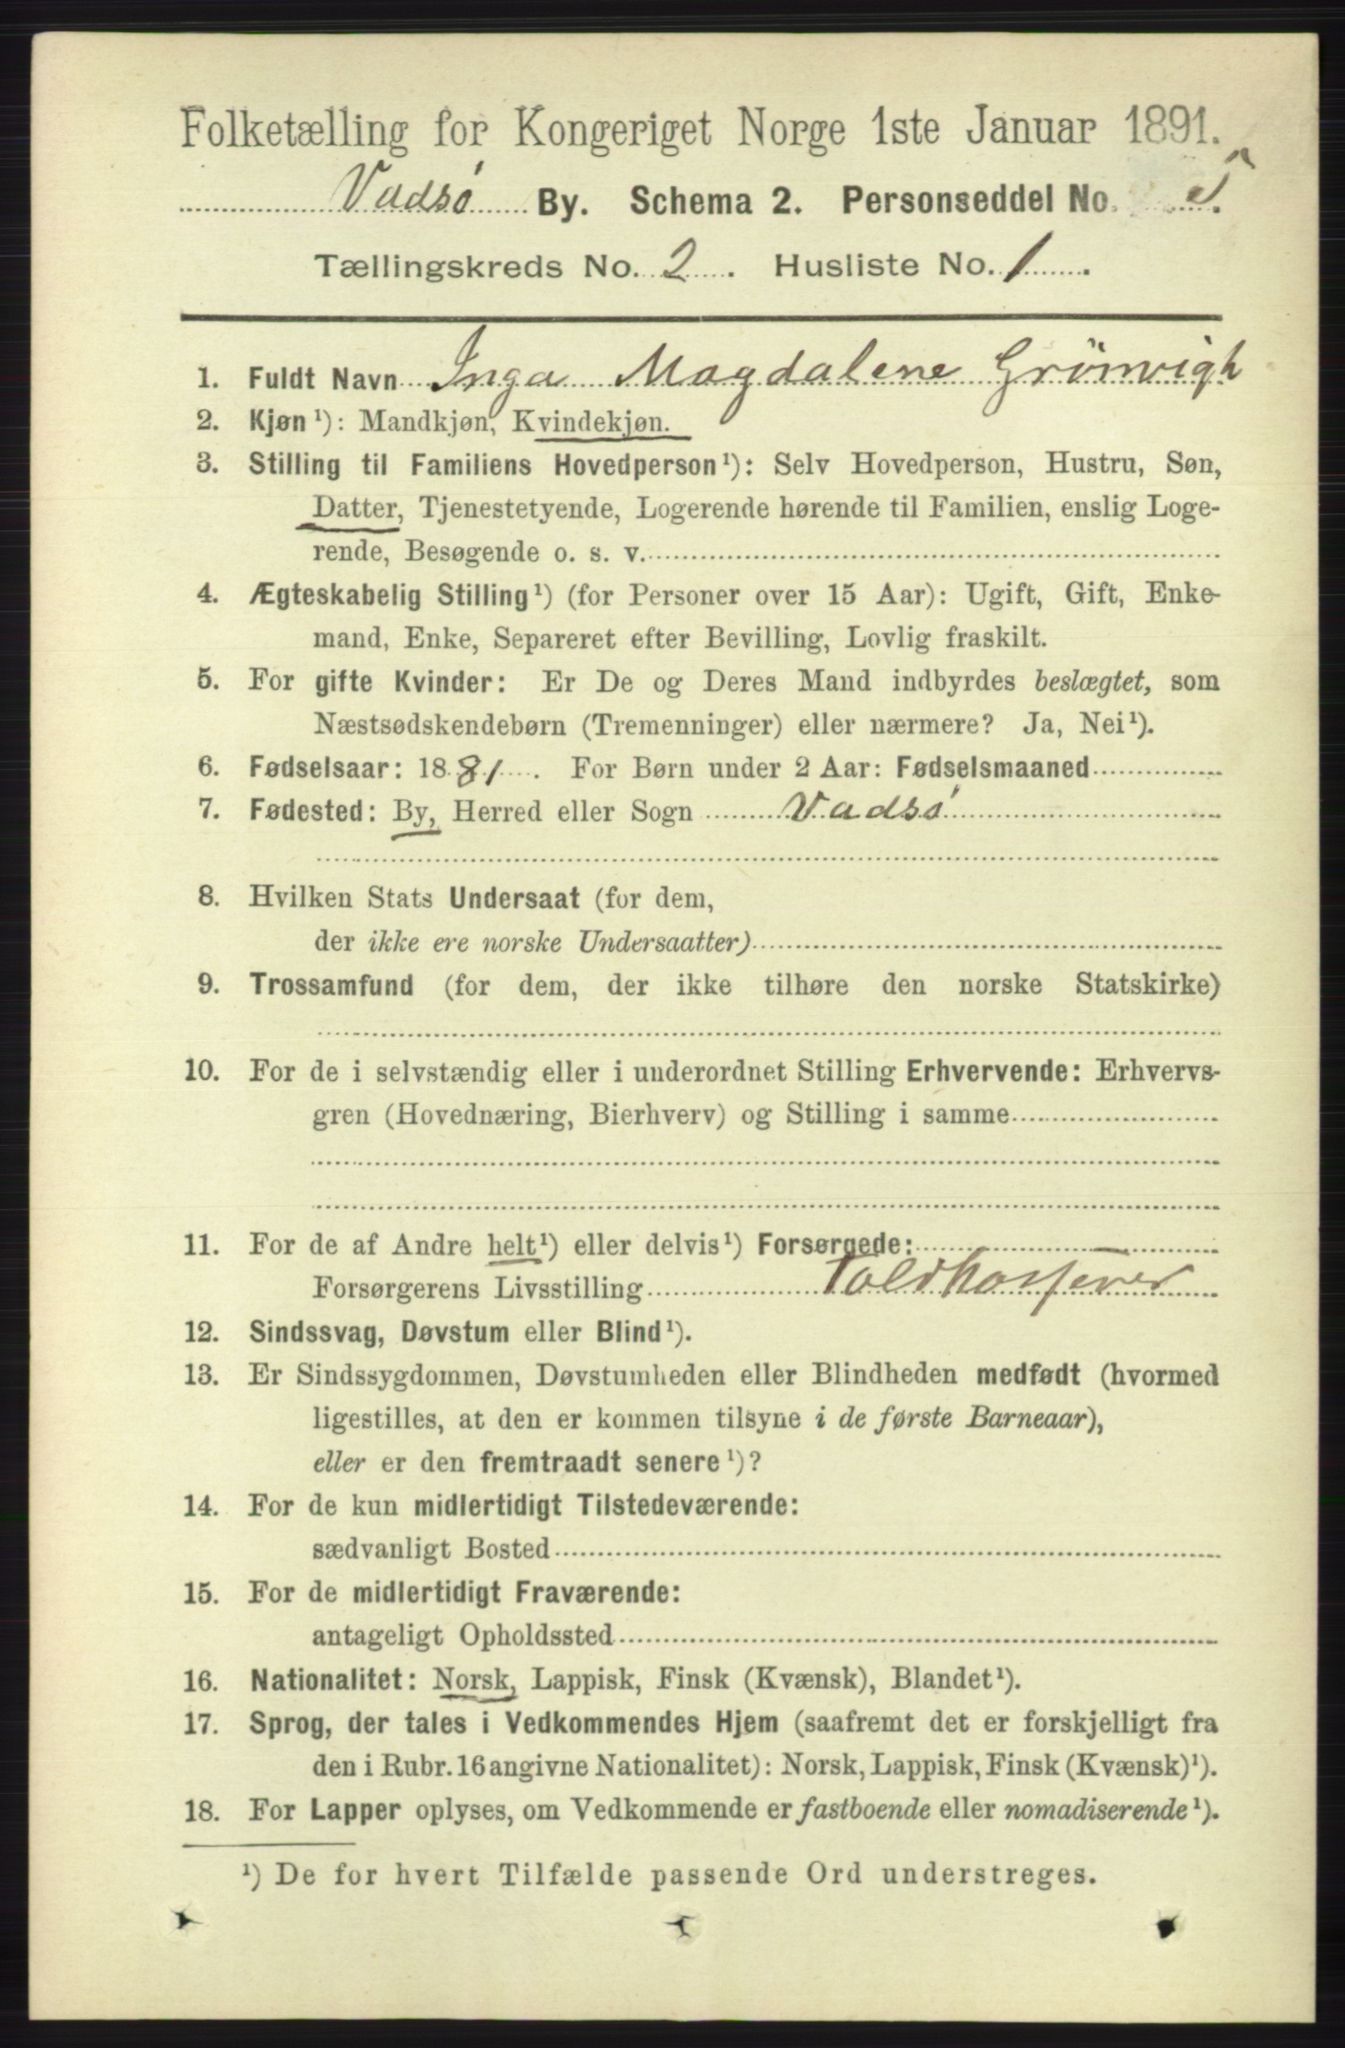 Folketælling for Kongeriget Norge 1ste Januar 1891.
Vadsö By. Schema 2. Personseddel No. 5.
Tællingskreds No. 2. Husliste No. 1.
1. Fuldt Navn Inga Magdalene Grönvigh
2. Kjøn¹): Mandkjøn, Kvindekjøn.
3. Stilling til Familiens Hovedperson¹): Selv Hovedperson, Hustru, Søn,
Datter, Tjenestetyende, Logerende hørende til Familien, enslig Loge-
rende, Besøgende o. s. v.
4. Ægteskabelig Stilling¹) (for Personer over 15 Aar): Ugift, Gift, Enke-
mand, Enke, Separeret efter Bevilling, Lovlig fraskilt.
5. For gifte Kvinder: Er De og Deres Mand indbyrdes beslægtet, som
Næstsødskendebørn (Tremenninger) eller nærmere? Ja, Nei¹).
6. Fødselsaar: 1881. For Børn under 2 Aar: Fødselsmaaned
7. Fødested: By, Herred eller Sogn Vadsö
8. Hvilken Stats Undersaat (for dem,
der ikke ere norske Undersaatter)
9. Trossamfund (for dem, der ikke tilhøre den norske Statskirke)
10. For de i selvstændig eller i underordnet Stilling Erhvervende: Erhvervs-
gren (Hovednæring, Bierhverv) og Stilling i samme
11. For de af Andre helt¹) eller delvis¹) Forsørgede:
Forsørgerens Livsstilling Toldkasserer
12. Sindssvag, Døvstum eller Blind¹).
13. Er Sindssygdommen, Døvstumheden eller Blindheden medfødt (hvormed
ligestilles, at den er kommen tilsyne i de første Barneaar),
eller er den fremtraadt senere¹)?
14. For de kun midlertidigt Tilstedeværende:
sædvanligt Bosted
15. For de midlertidigt Fraværende:
antageligt Opholdssted
16. Nationalitet: Norsk, Lappisk, Finsk (Kvænsk), Blandet¹).
17. Sprog, der tales i Vedkommendes Hjem (saafremt det er forskjelligt fra
den i Rubr. 16 angivne Nationalitet): Norsk, Lappisk, Finsk (Kvænsk)¹).
18. For Lapper oplyses, om Vedkommende er fastboende eller nomadiserende¹).
¹) De for hvert Tilfælde passende Ord understreges.